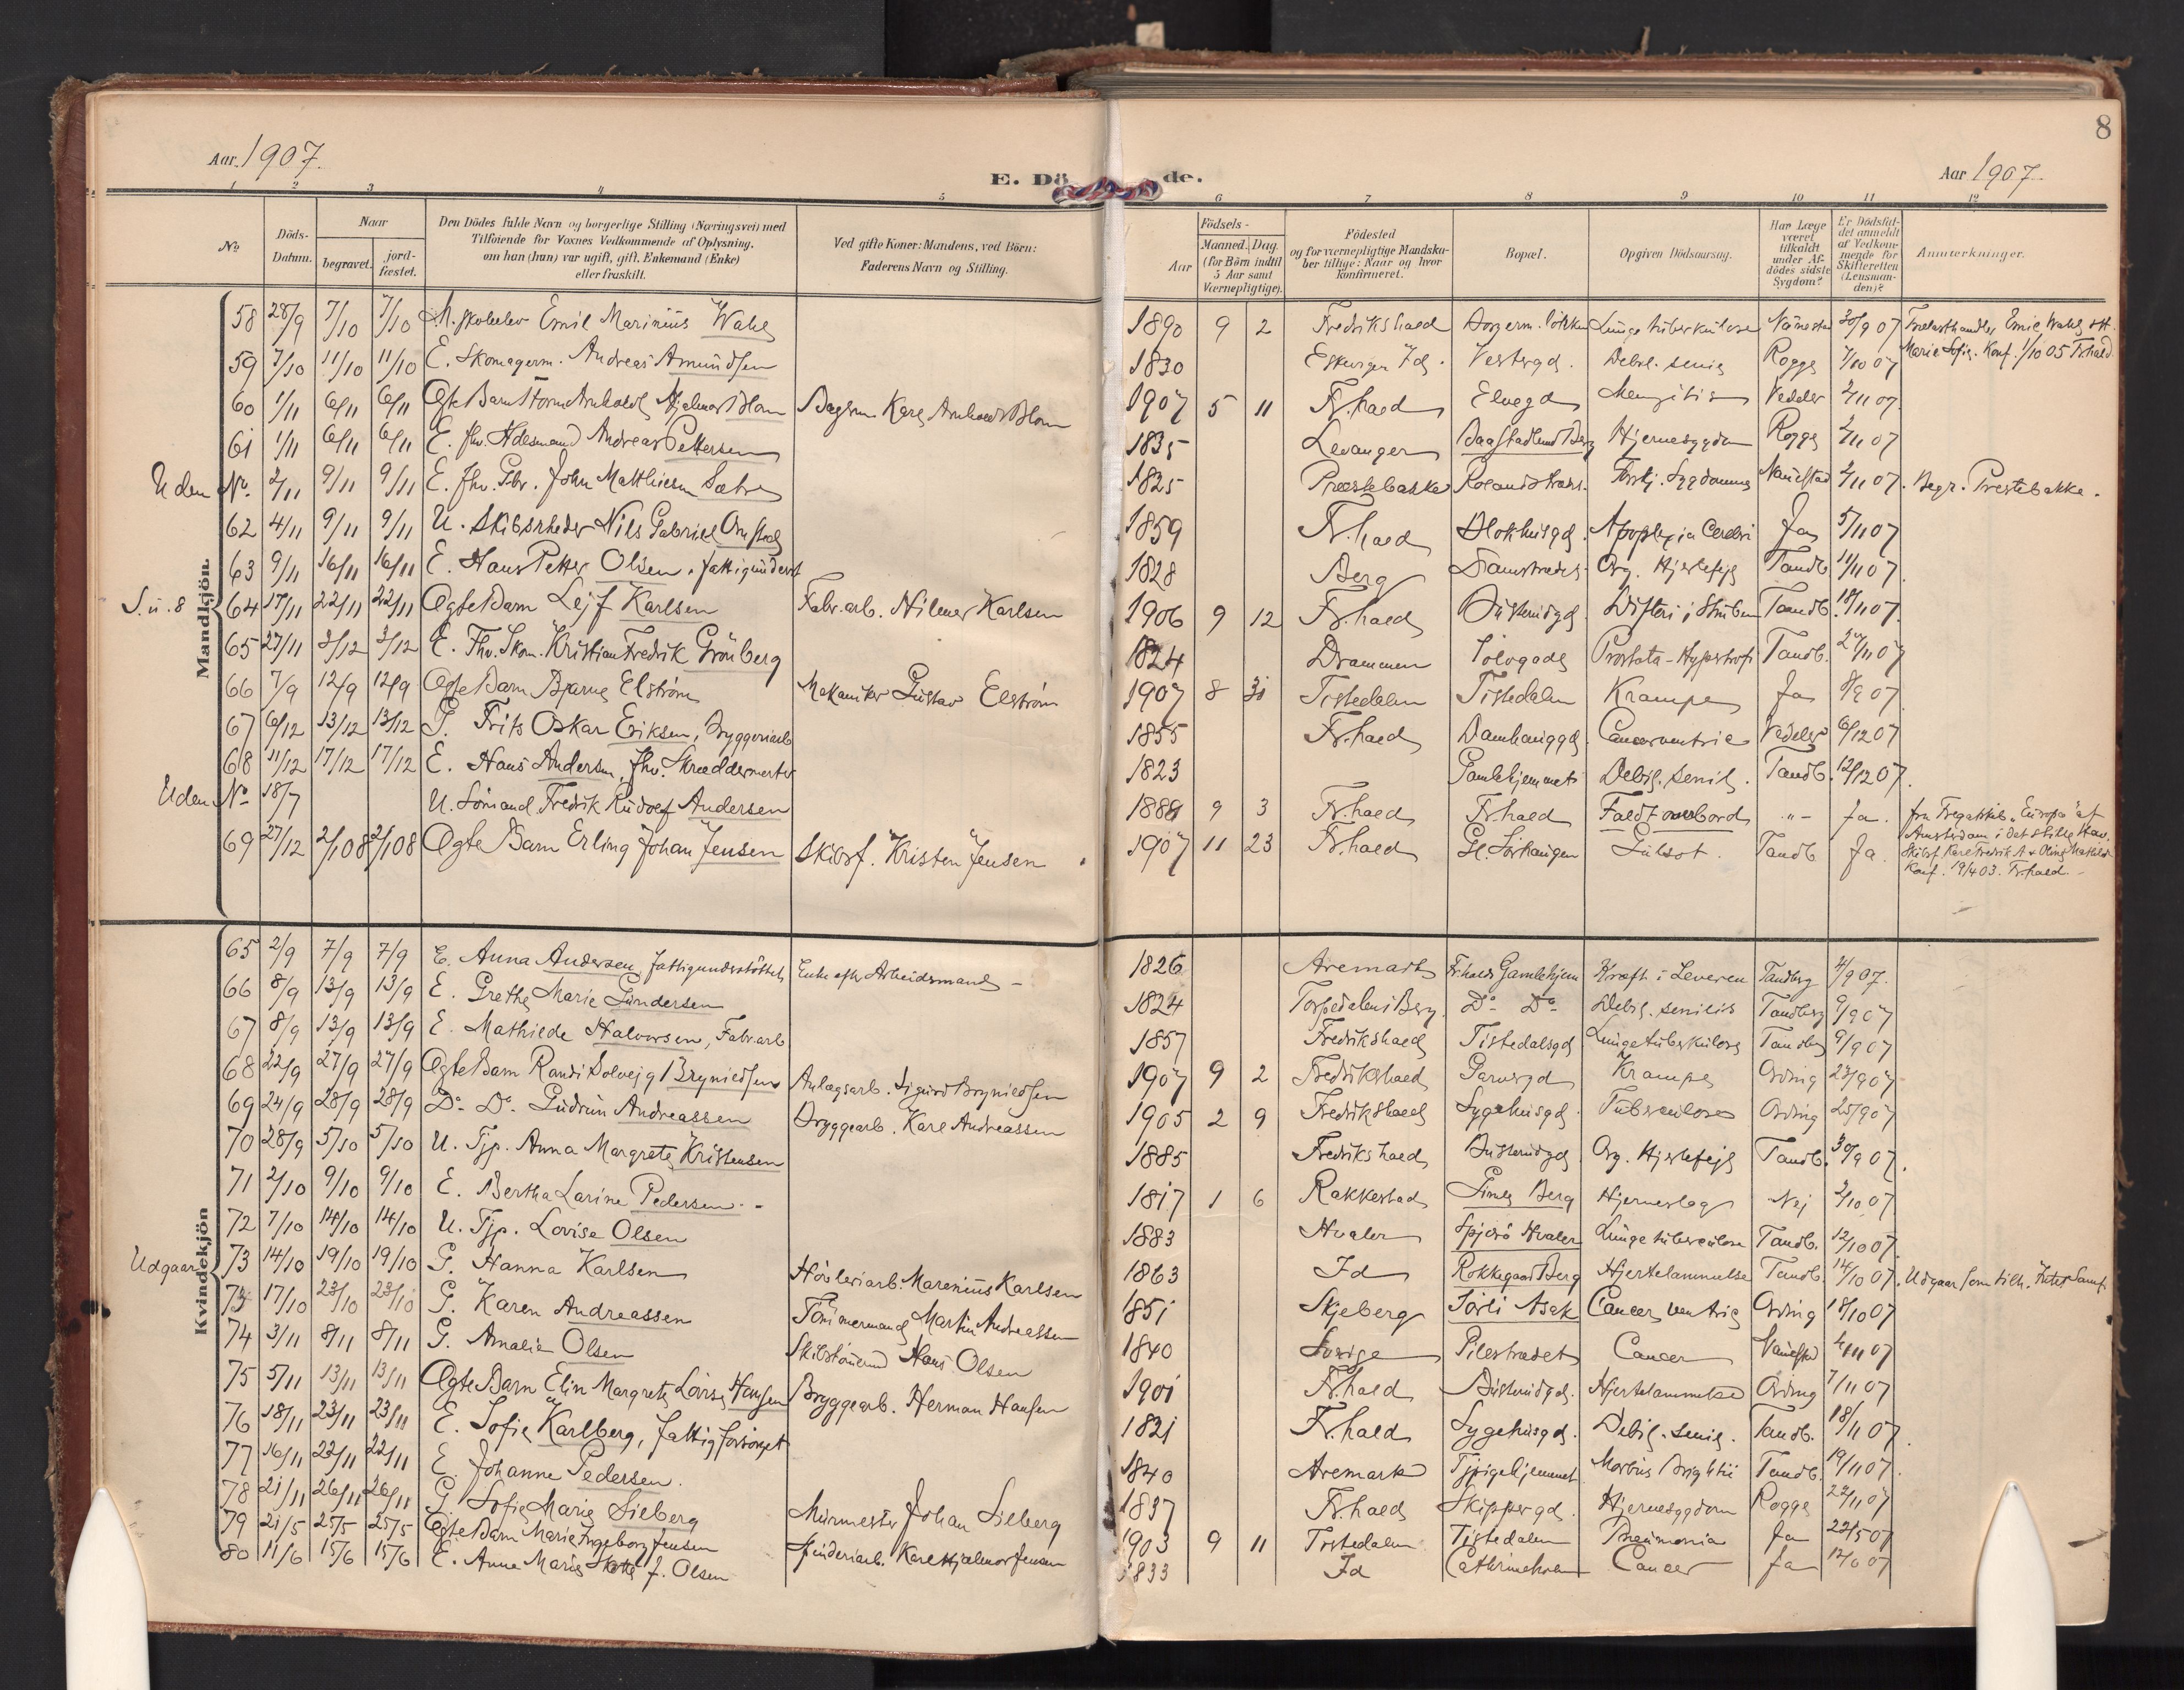 8
Aar 1907.
E. Dö
de.
Aar 1907.
1 2 3 4 5 6 7 8 9 10 11 12
No.
Döds-Datum.
Naar
begravet.
jord-fæstet.
Den Dödes fulde Navn og borgerlige Stilling (Næringsvei) med
Tilföiende for Voxnes Vedkommende af Oplysning,
om han (hun) var ugift, gift, Enkemand (Enke)
eller fraskilt.
Ved gifte Koner: Mandens, ved Börn:
Faderens Navn og Stilling.
Födsels-
Aar
Maaned. Dag.
(for Börn indtil
5 Aar samt
Værnepligtige).
Födested
og for værnepligtige Mandska-
ber tillige: Naar og hvor
konfirmeret.
Bopæl.
Opgiven Dödsaarsag.
Har Læge
været
tilkaldt
under Af-
dödes sidste
Sygdom?
Er Dödsfal-
det anmeldt
af Vedkom-
mende for
Skifteretten
(Lensman-
den)?
Anmærkninger.
Mandkjön.
58 28/9 7/10 7/10 M. skoleelev Emil Marinius Wahl 1890 9 2 Fredrikshald Lungetuberkulose 30/9 07 Emil Wahl
Marie Konf. 1/10 05 Frhald
59 7/10 11/10 11/10 E. Skomagerm. Andreas Amundsen 1830 Id. Vestergd. Debil. senil Rogge 7/10 07
60 1/11 6/11 6/11 Ægte Barn Hjalmar Blom Bagerm. Karl Blom 1907 5 11 Fr.hald Elvegd 2/11 07
61 1/11 6/11 6/11 E. fhv. Andreas Pettersen 1835 Levanger Berg Hjernesygdom Rogge 2/11 07
Uden No. 2/11 9/11 9/11 E. fhv. Gbr. John Matthiesen 1825 Præstebakke Sygdomme 2/11 07. Begr. Prestebakke.
62 4/11 9/11 9/11 U. Skibsrheder Nils Gabriel 1859 Fr.hald Blokhusgd. Apoplexia Cerebri Ja 5/11 07
63 9/11 16/11 16/11 E. Hans Petter Olsen, fattigunderst 1828 Berg Org. Hjertefejl Tandb. 11/11 07
S. u. 8 64 17/11 22/11 22/11 Ægte Barn Lejf Karlsen Fabr.arb. Hilmer Karlsen 1906 9 12 Fr.hald Difteri i Struben Tandb. 18/11 07.
65 27/11 3/12 3/12 E. Fhv. Skom. Kristian Fredrik Grönberg 1824 Drammen Prostata-Hypertrofi Tandb. 27/11 07
66 7/9 12/9 12/9 Ægte Barn Bjarne Elström Mekaniker Gustav Elström 1907 8 31 Tistedalen Tistedalen Krampe Ja 8/9 07
67 6/12 13/12 13/12 G. Frits Oskar Eriksen, Bryggeriarb 1855 Fr.hald Damhauggd Cancer ventric 6/12 07
68 11/12 17/12 17/12 E. Hans Andersen, fhv. Skreddermester 1823 Gamlehjemmet Debil. senil. Tandb. 12/12 07.
Uden No 18/7 U. Sömand Fredrik Rudolf Andersen 9 3 Fr.hald Fr.hald Faldt overbord "- Ja. fra Fregatskib "Europa" af
Amsterdam i det stille Hav.
Skibsf. Karl Fredrik A. & Mathilde
Konf. 19/4 03. Fr.hald.
69 27/12 2/1 08 2/1 08 Ægte Barn Erling Johan Jensen Skibsf. Kristen Jensen 1907 11 23 Fr.hald Gl. Sörhaugen Gulsot. Tandb Ja.
Kvindekjön
65 2/9 7/9 7/9 E. Anna Andersen, fattigunderstöttet Enke efter Arbeidsmand - 1826 Aremark Fr.halds Gamlehjem Kræft i Leveren Tandberg 4/9 07.
66 8/9 13/9 13/9 E. Grethe Marie Gundersen 1824 Torpedalen i Berg. Do Do Debil. senilis Tandberg 9/9 07
67 8/9 13/9 13/9 E. Mathilde Halvorsen, Fabr.arb 1857 Fredrikshald Tistedalsgd Lungetuberkulose Tandberg 9/9 07
68 22/9 27/9 27/9 Ægte Barn Randi Solvejg Brynildsen Anlægsarb. Sigurd Brynildsen 1907 9 2 Fredrikshald Garvergd Krampe Ording 23/9 07
69 24/9 28/9 28/9 Do Do Gudrun Andreassen Bryggearb. Karl Andreassen 1905 2 9 Fredrikshald Sygehusgd. Tuberculose Ording 25/9 07
70 28/9 5/10 5/10 U. Tjp. Anna Margrete Kristensen 1885 Fredrikshald Org. Hjertefejl Tandb. 30/9 07.
71 2/10 9/10 9/10 E. Bertha Larine Pedersen. - 1817 1 6 Rakkestad Berg Hjerneslag Nej 3/10 07
72 7/10 14/10 14/10 U. Tjp. Lovise Olsen 1883 Hvaler Spjerö Hvaler Lungetuberculose Tandb. 12/10 07
Udgaar 73 14/10 19/10 19/10 G. Hanna Karlsen Hövleriarb. Marenius Karlsen 1863 Id Rokkegaard Berg Hjertelammelse Tandb. 14/10 07. Udgaar som tilh.
73 17/10 23/10 23/10 G. Karen Andreassen Tömmermand Martin Andreassen 1851 Skjeberg Sörli Asak Cancer ventric Ording 18/10 07
74 3/11 8/11 8/11 G. Amalie Olsen Skibstömmermd Hans Olsen 1840 Sverige Pilestrædet Cancer 4/11 07
75 5/11 13/11 13/11 Ægte Barn Elin Margrete Lovise Hansen Bryggearb. Herman Hansen 1901 Fr.hald Hjertelammelse Ording 7/11 07
76 18/11 23/11 23/11 E. Sofie Karlberg, fattigforsörget 1821 Fr.hald Sygehusgd. Debil. senil. Tandb. 18/11 07
77 16/11 22/11 22/11 E. Johanne Pedersen. 1840 Aremark Morbus Brightii Tandb. 19/11 07.
78 21/11 26/11 26/11 G. Sofie Marie Sieberg Murmester Johan Sieberg 1837 Fr.hald Skippergd. Hjernesygdom Rogge 22/11 07
79 21/5 25/5 25/5 Ægte Barn Marie Ingeborg Jensen Spinderiarb. Karl Hjalmar Jensen 1903 9 11 Tistedalen Tistedalen Pneumonia Ja 22/5 07
80 11/6 15/6 15/6 E. Anne Marie f. Olsen 1833 Id Cathrineholm Cancer Ja